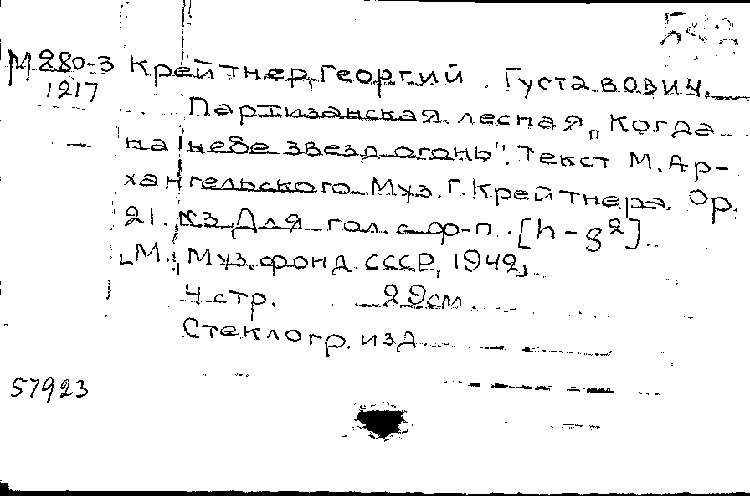 М280-3 Крейтнер, Георгий Густавович.
1217
Партизанская лесная „Когда
на небе звезд огонь". Текст М. Ар-
хангельского Муз. Г. Крейтнера. Ор.
21. кз. Для гол. с ф-п. [h - g²]
[М.] Муз. фонд СССР, 1942,
4 стр. 29см.
Стеклогр. изд.
57923